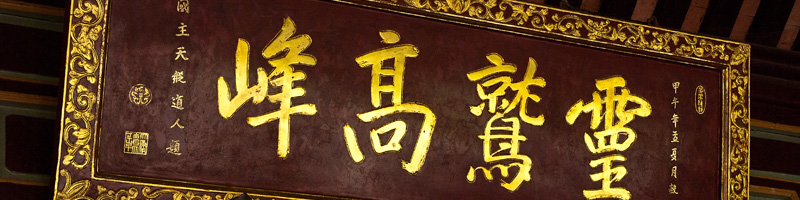 甲午年孟夏月
靈鷲高峰
國主天道人題